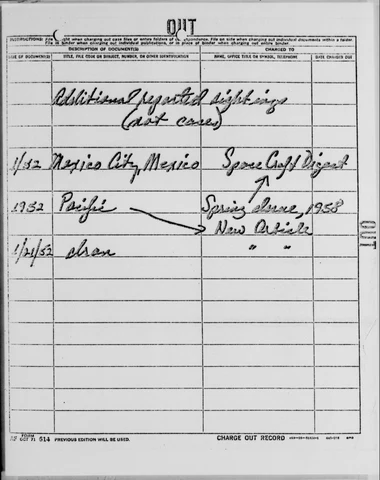 OUT
INSTRUCTIONS: when charging out case files or entire folders of correspondence. File on side when charging out individual documents within a folder.
File in binder when charging out individual publications, or in place of binder when charging out entire binder.
DESCRIPTION OF DOCUMENT(S) CHARGED TO
DATE OF DOCUMENT(S) TITLE, FILE CODE OR SUBJECT, NUMBER, OR OTHER IDENTIFICATION NAME, OFFICE TITLE OR SYMBOL, TELEPHONE DATE CHARGED OUT
Additional reported sightings
(not cases)
1/52 Mexico City, Mexico Space Craft Digest
1952 Pacific Spring Issue, 1958
New Article
1/21/52 Iran " "
OUT
FORM
OCT 71 614 PREVIOUS EDITION WILL BE USED. CHARGE OUT RECORD